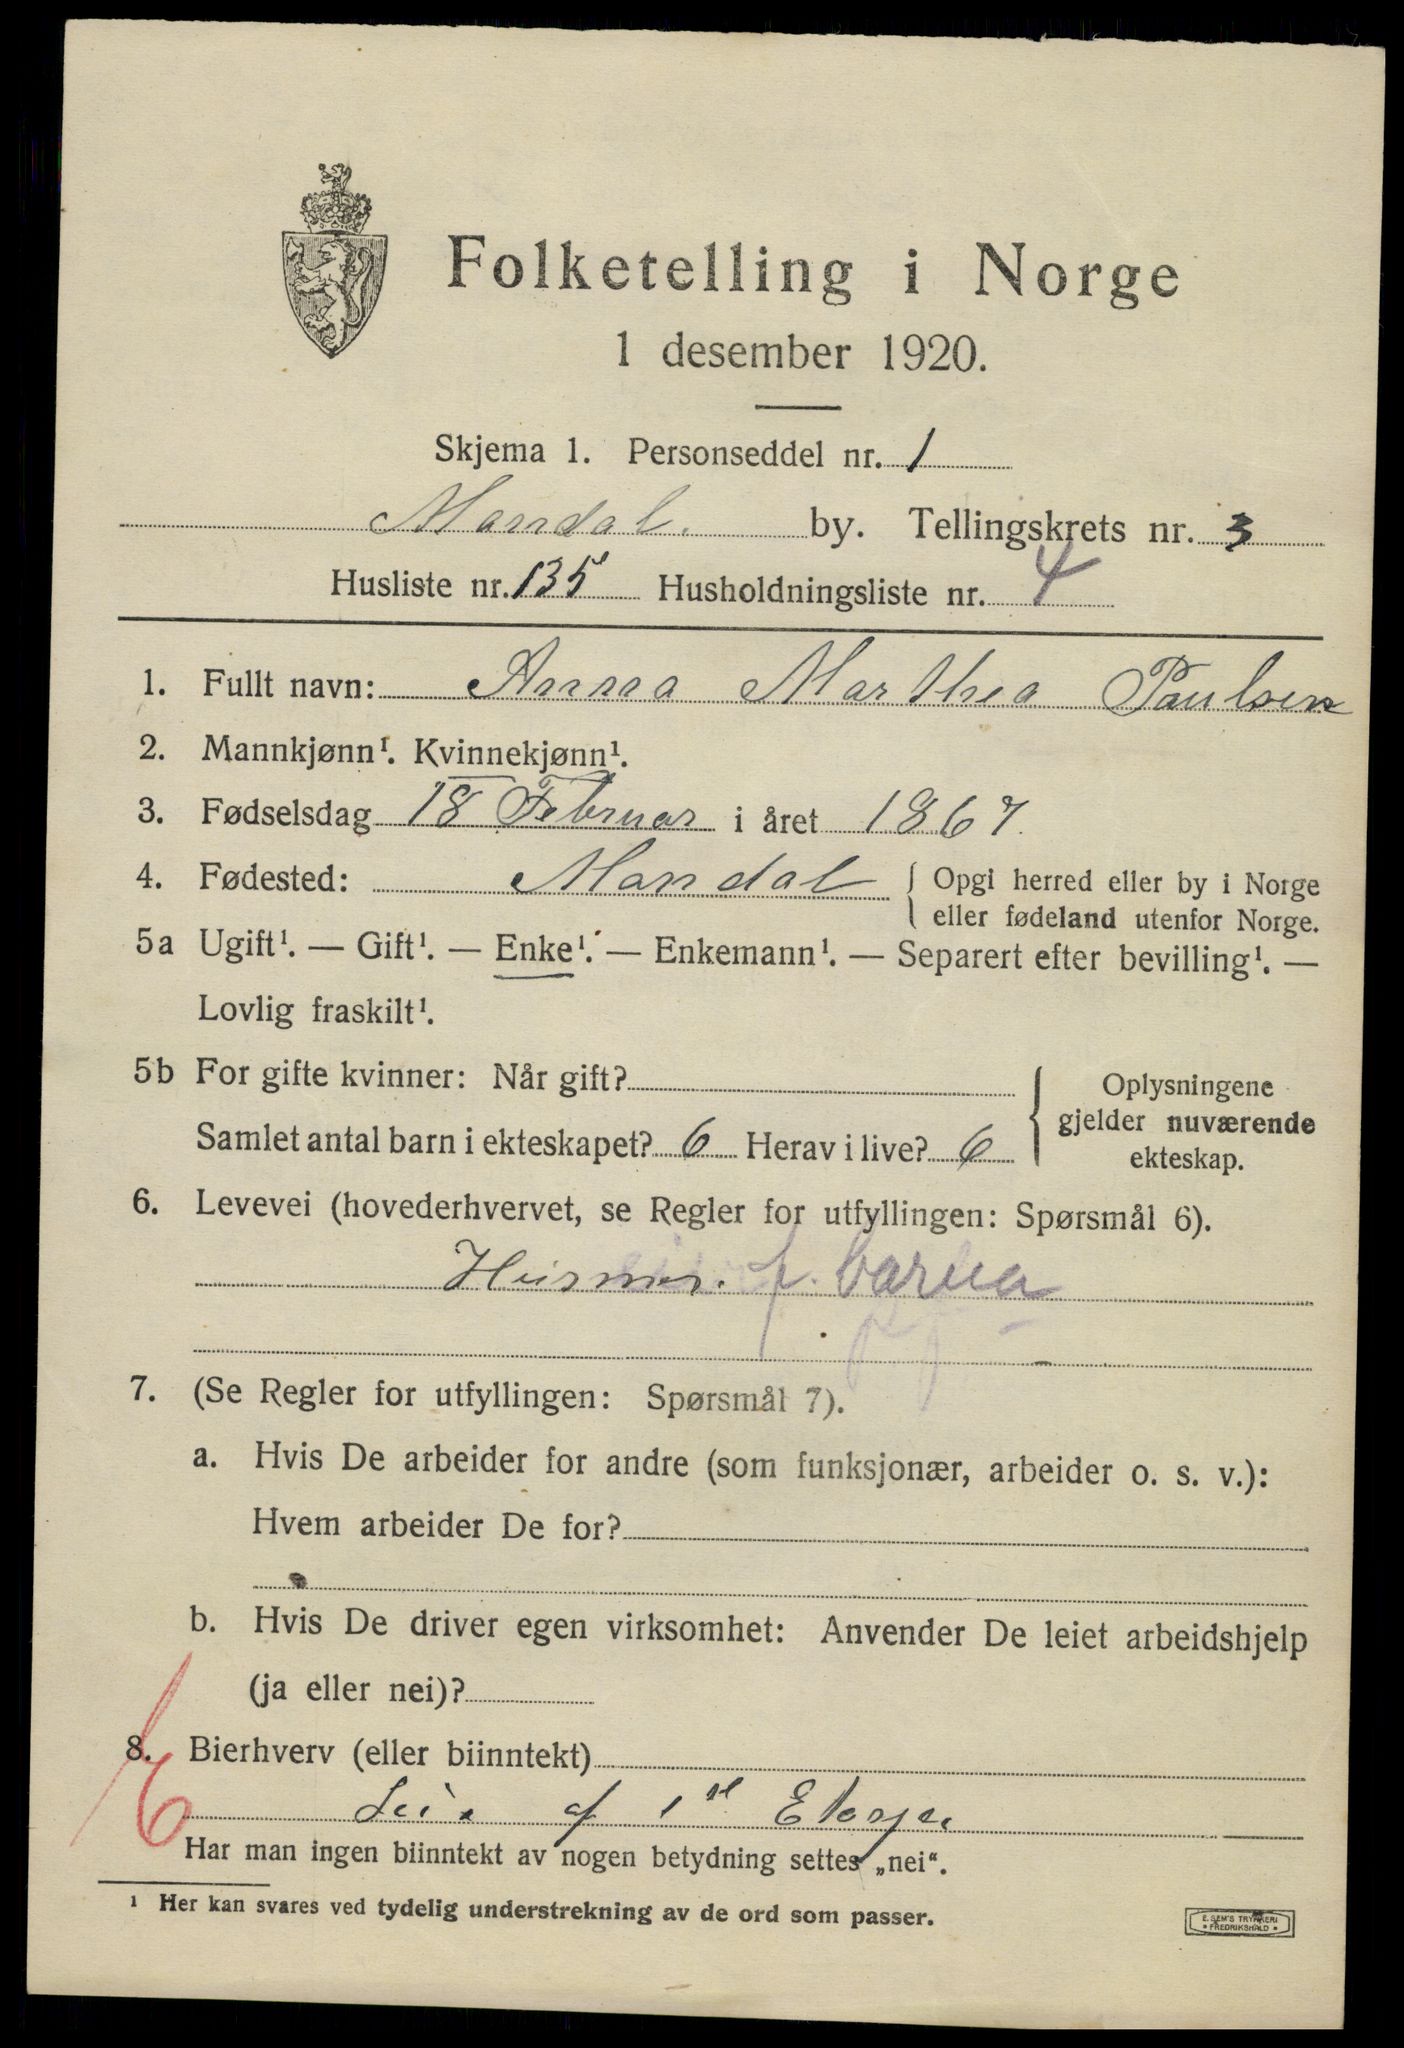 Folketelling i Norge
1 desember 1920.
Skjema 1. Personseddel nr. 1
Mandal. by. Tellingskrets nr. 3
Husliste nr. 135 Husholdningsliste nr. 4
1. Fullt navn: Anna Marthea Paulsen
2. Mannkjønn¹. Kvinnekjønn¹.
3. Fødselsdag 18 Februar i året 1867.
4. Fødested: Mandal { Opgi herred eller by i Norge
eller fødeland utenfor Norge.
5a Ugift¹. — Gift¹. — Enke¹. — Enkemann¹. — Separert efter bevilling¹. —
Lovlig fraskilt¹.
5b For gifte kvinner: Når gift?
Samlet antal barn i ekteskapet? 6 Herav i live? 6
Oplysningene
gjelder nuværende
ekteskap.
6. Levevei (hovederhvervet, se Regler for utfyllingen: Spørsmål 6).
Husmor. f. barna
7. (Se Regler for utfyllingen: Spørsmål 7).
a. Hvis De arbeider for andre (som funksjonær, arbeider o. s. v.):
Hvem arbeider De for?
b. Hvis De driver egen virksomhet: Anvender De leiet arbeidshjelp
(ja eller nei)?
8. Bierhverv (eller biinntekt)
Leie af 1st Etasje
Har man ingen biinntekt av nogen betydning settes „nei“.
¹ Her kan svares ved tydelig understrekning av de ord som passer.
E. SEM'S TRYKKERI
• FREDRIKSHALD •